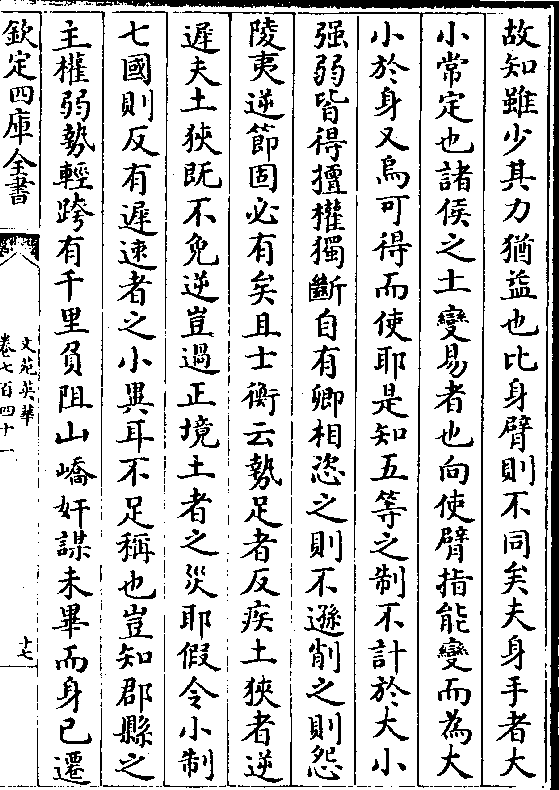 故知雖少其力猶益也比身臂則不同矣夫身手者大
小常定也諸侯之土變易者也向使臂指能變而為大
小於身又烏可得而使耶是知五等之制不計於大小
强弱皆得擅權獨斷自有卿相恣之則不遜削之則怨
陵夷逆節固必有矣且士衡云勢足者反疾土狹者逆
遲夫土狹既不免逆豈過正境土者之災耶假令小制
七國則反有遲速者之小異耳不足稱也豈知郡縣之
主權弱勢輕跨有千里負阻山嶠奸謀未畢而身已遷
欽定四庫全書
文苑英華
卷七百四十一
十七